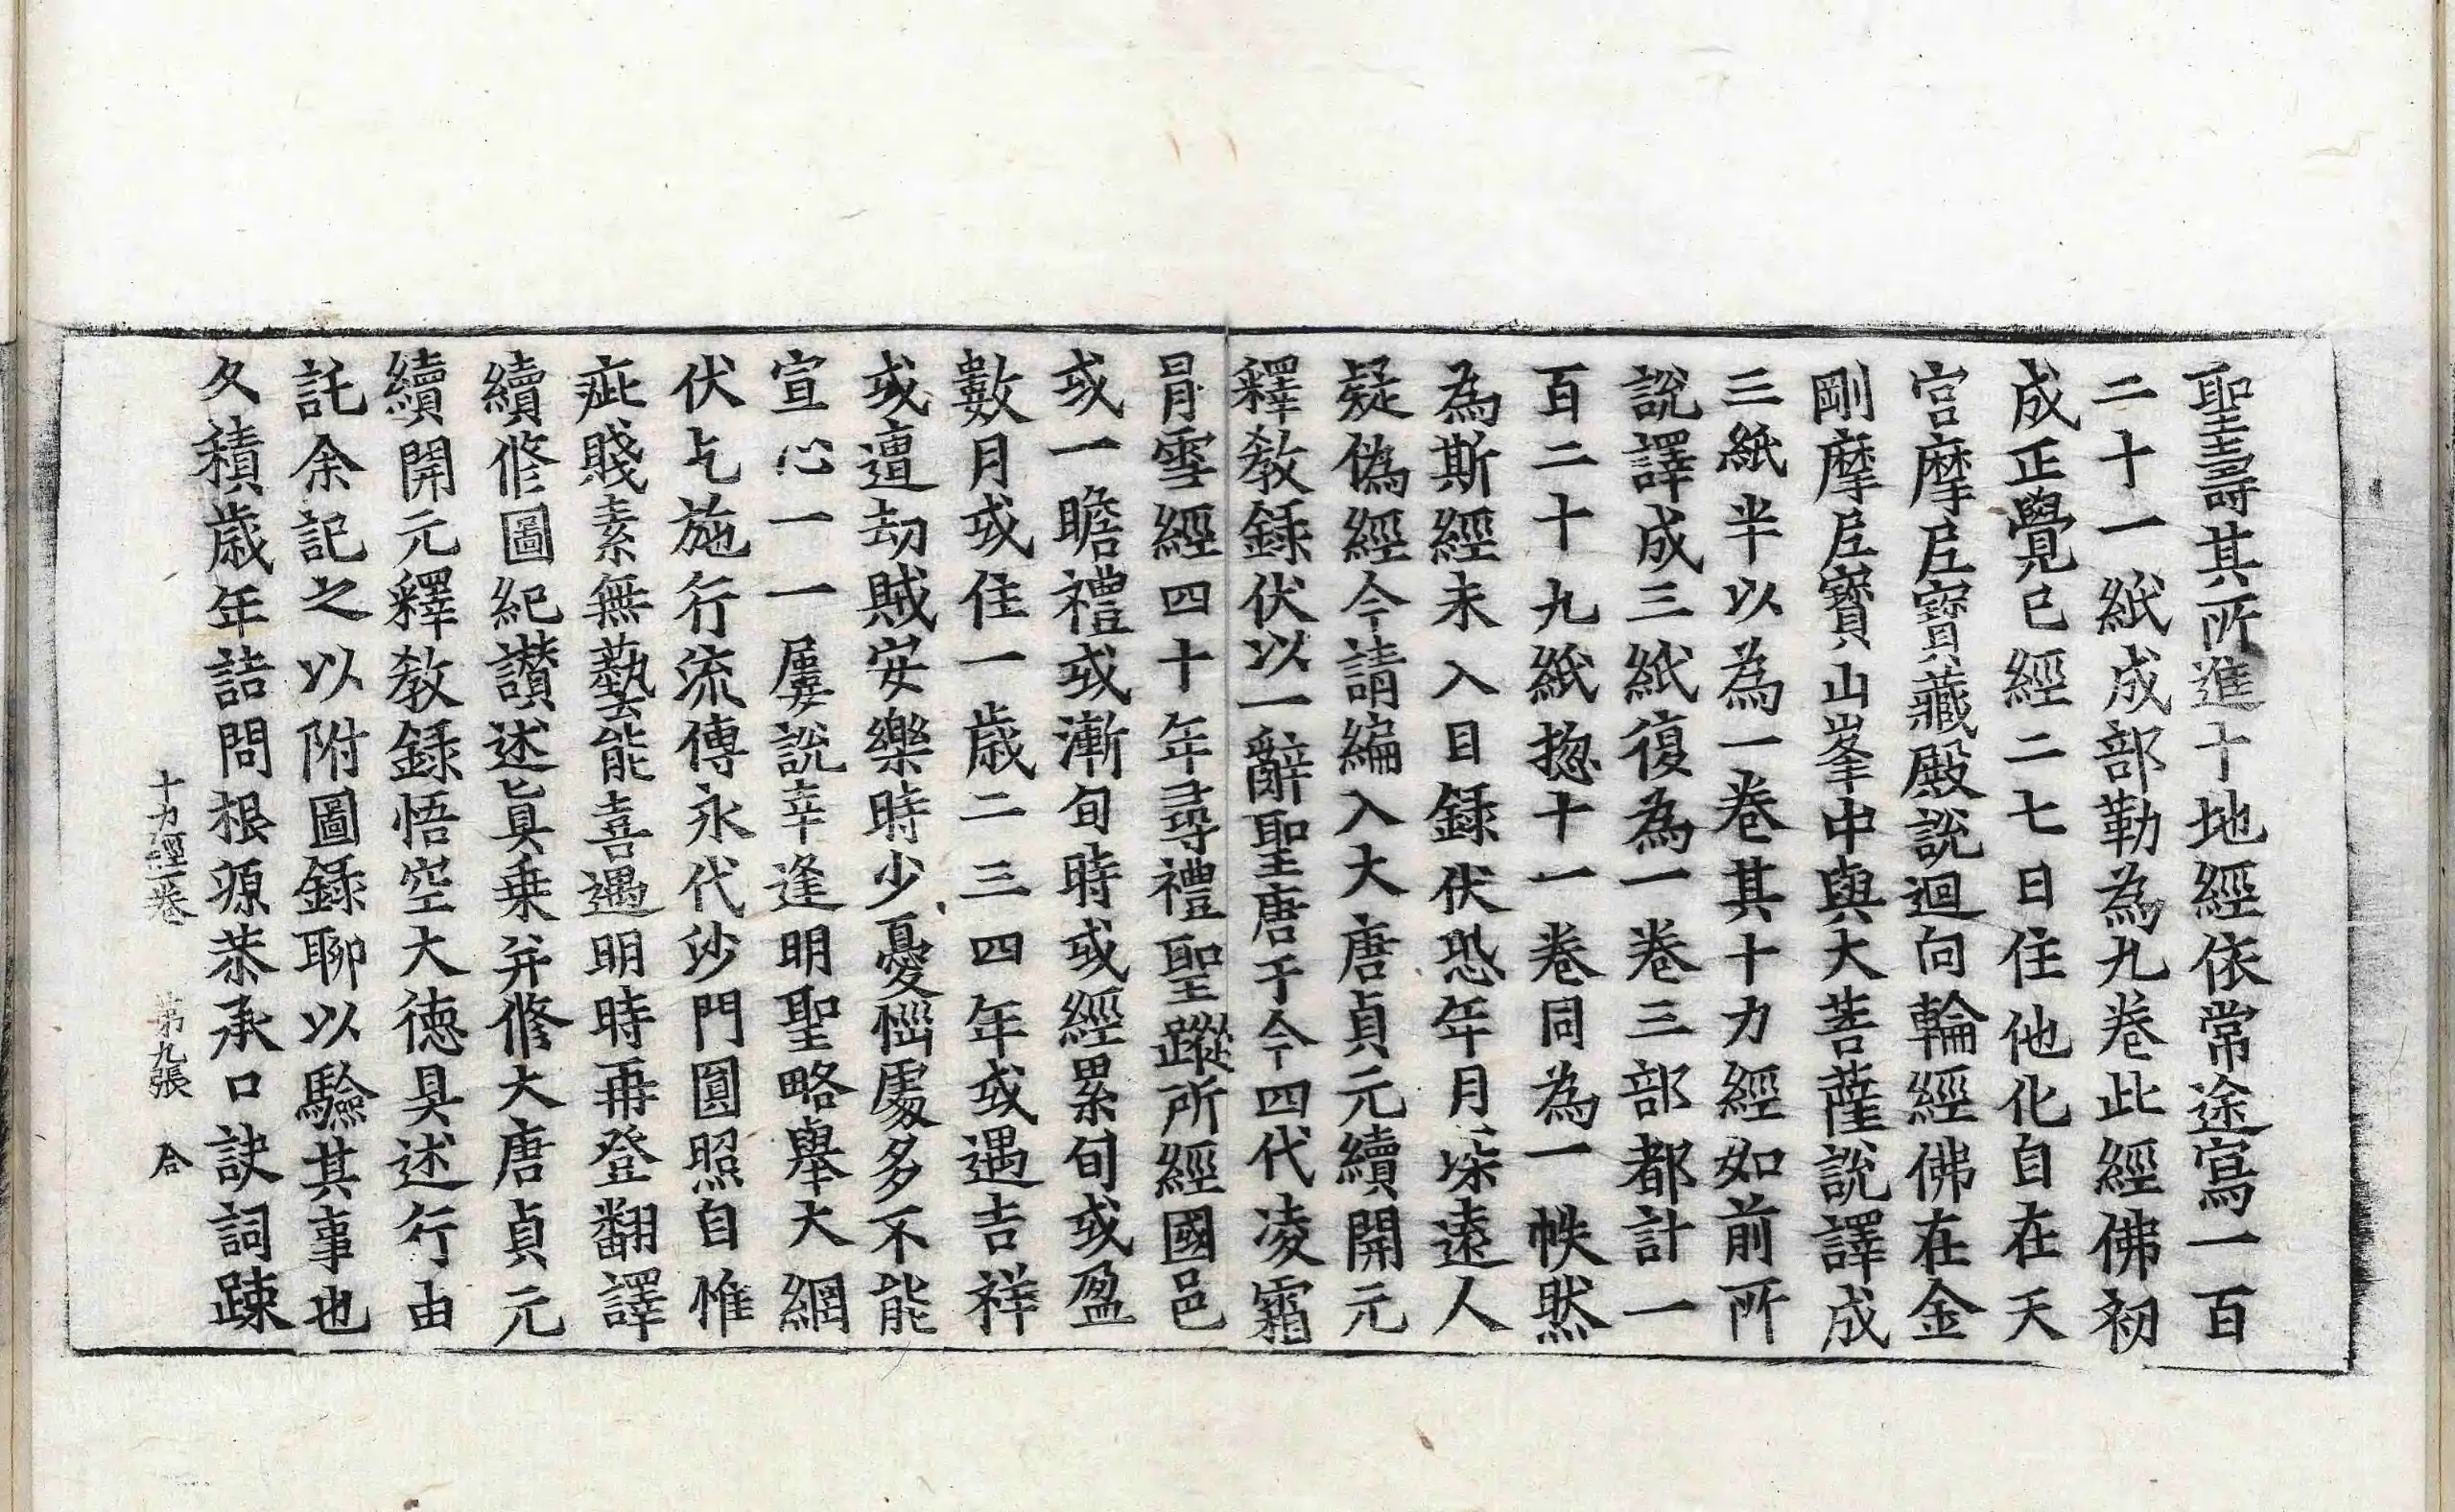 聖壽其所進十地經依常途寫一百
二十一紙成部勒為九卷此經佛初
成正覺已經二七日住他化自在天
宮摩尼寶藏殿說迴向輪經佛在金
剛摩尼寶山峯中與大菩薩說譯成
三紙半以為一卷其十力經如前所
說譯成三紙復為一卷三部都計一
百二十九紙揔十一卷同為一帙然
為斯經未入目録伏恐年月深遠人
疑偽經今請編入大唐貞元續開元
釋教録伏以一辭聖唐于今四代凌霜
冐雪經四十年尋禮聖蹤所經國邑
或一瞻禮或漸旬時或經累旬或盈
數月或住一歲二三四年或遇吉祥
或遭劫賊安樂時少憂惱處多不能
宣心一一屢說幸逢明聖略舉大綱
伏乞施行流傳永代沙門圓照自惟
疵賤素無藝能喜遇明時再登翻譯
續修圖紀讃述眞乗并修大唐貞元
續開元釋教録悟空大德具述行由
託余記之以附圖録聊以驗其事也
久積歲年詰問根源恭承口訣詞疎
十力經一卷 第九張 合